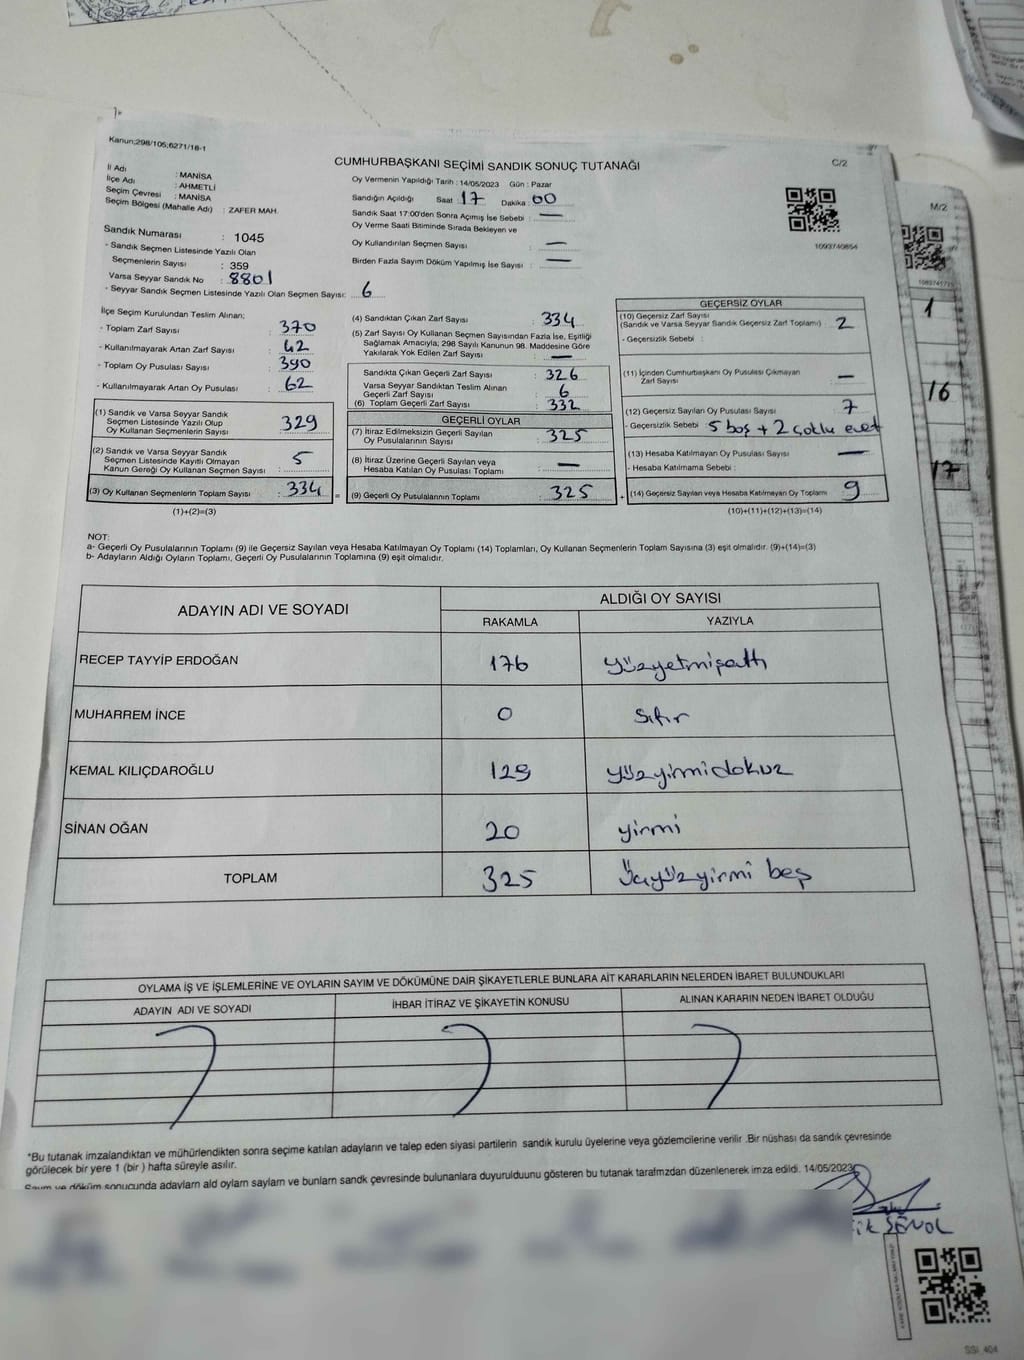 Kanun;298/105;6271/16-1
CUMHURBAŞKANI SEÇİMİ SANDIK SONUÇ TUTANAĞI
C/2
İl Adı : MANİSA
İlçe Adı : AHMETLİ
Seçim Çevresi : MANİSA
Seçim Bölgesi (Mahalle Adı) : ZAFER MAH.
Sandık Numarası : 1045
- Sandık Seçmen Listesinde Yazılı Olan
Seçmenlerin Sayısı : 359
Varsa Seyyar Sandık No : 8801
- Seyyar Sandık Seçmen Listesinde Yazılı Olan Seçmen Sayısı: 6
Oy Vermenin Yapıldığı Tarih : 14/05/2023 Gün : Pazar
Sandığın Açıldığı Saat : 17 Dakika : 00
Sandık Saat 17:00'den Sonra Açımış İse Sebebi : —
Oy Verme Saati Bitiminde Sırada Bekleyen ve
Oy Kullandırılan Seçmen Sayısı : —
Birden Fazla Sayım Döküm Yapılmış İse Sayısı : —
1093740854
M/2
1
16
17
İlçe Seçim Kurulundan Teslim Alınan;
- Toplam Zarf Sayısı : 370
- Kullanılmayarak Artan Zarf Sayısı : 42
- Toplam Oy Pusulası Sayısı : 390
- Kullanılmayarak Artan Oy Pusulası : 62
(1) Sandık ve Varsa Seyyar Sandık
Seçmen Listesinde Yazılı Olup
Oy Kullanan Seçmenlerin Sayısı : 329
(2) Sandık ve Varsa Seyyar Sandık
Seçmen Listesinde Kayıtlı Olmayan
Kanun Gereği Oy Kullanan Seçmen Sayısı : 5
(3) Oy Kullanan Seçmenlerin Toplam Sayısı : 334 =
(1)+(2)=(3)
(4) Sandıktan Çıkan Zarf Sayısı : 334
(5) Zarf Sayısı Oy Kullanan Seçmen Sayısından Fazla İse, Eşitliği
Sağlamak Amacıyla; 298 Sayılı Kanunun 98. Maddesine Göre
Yakılarak Yok Edilen Zarf Sayısı : —
Sandıkta Çıkan Geçerli Zarf Sayısı : 326
Varsa Seyyar Sandıktan Teslim Alınan
Geçerli Zarf Sayısı : 6
(6) Toplam Geçerli Zarf Sayısı : 332
GEÇERLİ OYLAR
(7) İtiraz Edilmeksizin Geçerli Sayılan
Oy Pusulalarının Sayısı : 325
(8) İtiraz Üzerine Geçerli Sayılan veya
Hesaba Katılan Oy Pusulası Toplamı : —
(9) Geçerli Oy Pusulalarının Toplamı : 325 +
GEÇERSİZ OYLAR
(10) Geçersiz Zarf Sayısı
(Sandık ve Varsa Seyyar Sandık Geçersiz Zarf Toplamı) : 2
- Geçersizlik Sebebi :
(11) İçinden Cumhurbaşkanı Oy Pusulası Çıkmayan
Zarf Sayısı : —
(12) Geçersiz Sayılan Oy Pusulası Sayısı : 7
- Geçersizlik Sebebi : 5 boş + 2 çoklu evet
(13) Hesaba Katılmayan Oy Pusulası Sayısı : —
- Hesaba Katılmama Sebebi :
(14) Geçersiz Sayılan veya Hesaba Katılmayan Oy Toplamı : 9
(10)+(11)+(12)+(13)=(14)
NOT:
a- Geçerli Oy Pusulalarının Toplamı (9) ile Geçersiz Sayılan veya Hesaba Katılmayan Oy Toplamı (14) Toplamları, Oy Kullanan Seçmenlerin Toplam Sayısına (3) eşit olmalıdır. (9)+(14)=(3)
b- Adayların Aldığı Oyların Toplamı, Geçerli Oy Pusulalarının Toplamına (9) eşit olmalıdır.
ADAYIN ADI VE SOYADI ALDIĞI OY SAYISI
RAKAMLA YAZIYLA
RECEP TAYYİP ERDOĞAN 176 yüzyetmişaltı
MUHARREM İNCE 0 sıfır
KEMAL KILIÇDAROĞLU 129 yüzyirmidokuz
SİNAN OĞAN 20 yirmi
TOPLAM 325 Üçyüzyirmi beş
OYLAMA İŞ VE İŞLEMLERİNE VE OYLARIN SAYIM VE DÖKÜMÜNE DAİR ŞİKAYETLERLE BUNLARA AİT KARARLARIN NELERDEN İBARET BULUNDUKLARI
ADAYIN ADI VE SOYADI İHBAR İTİRAZ VE ŞİKAYETİN KONUSU ALINAN KARARIN NEDEN İBARET OLDUĞU
*Bu tutanak imzalandıktan ve mühürlendikten sonra seçime katılan adayların ve talep eden siyasi partilerin sandık kurulu üyelerine veya gözlemcilerine verilir .Bir nüshası da sandık çevresinde
görülecek bir yere 1 (bir ) hafta süreyle asılır.
Sayım ve döküm sonucunda adayların ald oyların sayların ve bunların sandk çevresinde bulunanlara duyurulduunu gösteren bu tutanak tarafmzdan düzenlenerek imza edildi. 14/05/2023
ŞENOL
SSİ 404